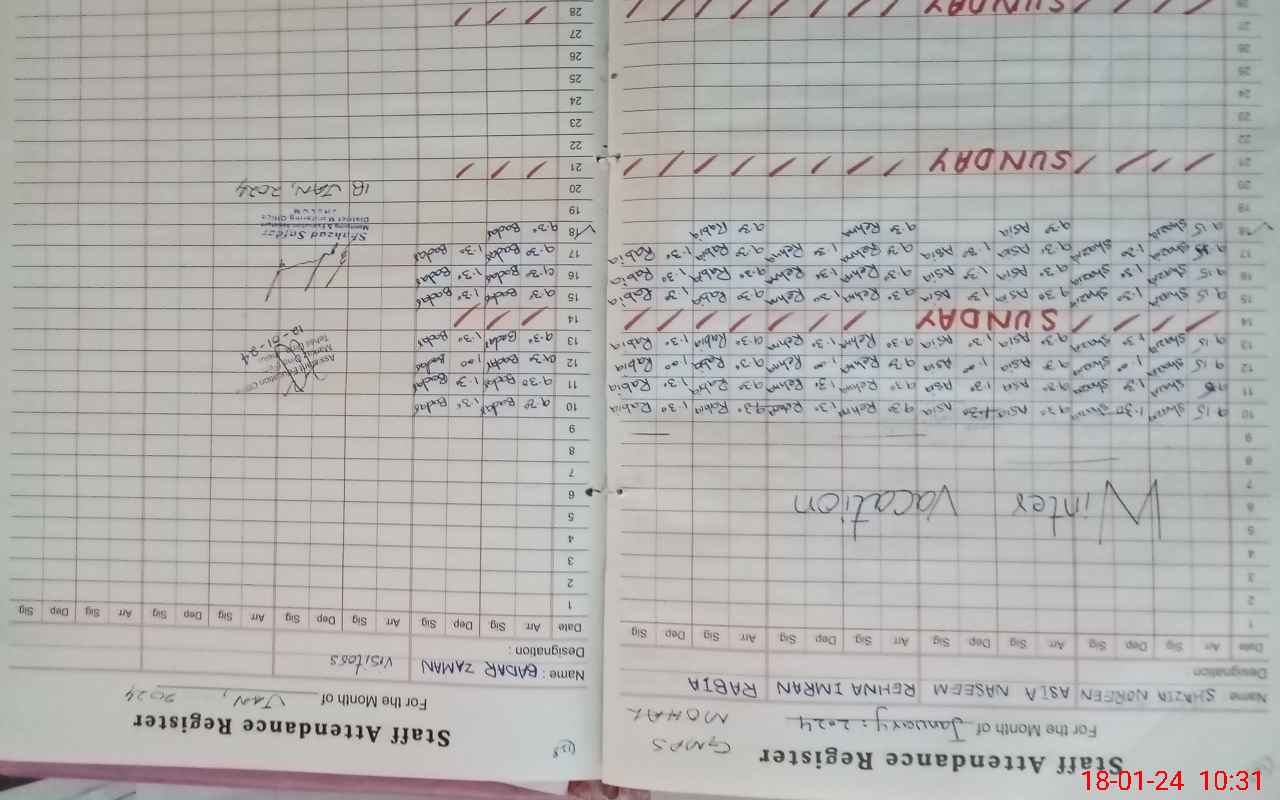 Staff Attendance Register
GMPS
MOHAL
For the Month of January: 2024
Name SHAZIA NOREEN ASIA NASEEM REHNA IMRAN RABIA
Designation
Date Arr Sig Dep Sig Arr Sig Dep Sig Arr Sig Dep Sig Arr Sig Dep Sig
1
2
3
4
5
6 Winter Vacation
7
8
9
10 9.15 Shazia 1.30 Shazia 9.30 Asia 1.30 Asia 9.30 Rehna 1.30 Rehna 9.30 Rabia 1.30 Rabia
11 9.15 Shazia 1.30 Shazia 9.30 Asia 1.30 Asia 9.30 Rehna 1.30 Rehna 9.30 Rabia 1.30 Rabia
12 9.15 Shazia 1.00 Shazia 9.30 Asia 1.00 Asia 9.30 Rehna 1.00 Rehna 9.30 Rabia 1.00 Rabia
13 9.15 Shazia 1.30 Shazia 9.30 Asia 1.30 Asia 9.30 Rehna 1.30 Rehna 9.30 Rabia 1.30 Rabia
14 SUNDAY
15 9.15 Shazia 1.30 Shazia 9.30 Asia 1.30 Asia 9.30 Rehna 1.30 Rehna 9.30 Rabia 1.30 Rabia
16 9.15 Shazia 1.30 Shazia 9.30 Asia 1.30 Asia 9.30 Rehna 1.30 Rehna 9.30 Rabia 1.30 Rabia
17 9.15 Shazia 1.30 Shazia 9.30 Asia 1.30 Asia 9.30 Rehna 1.30 Rehna 9.30 Rabia 1.30 Rabia
18 9.15 Shazia 9.30 Asia 9.30 Rehna 9.30 Rabia
19
20
21 SUNDAY
22
23
24
25
26
27
28 SUNDAY
Staff Attendance Register
For the Month of JAN, 2024
Name : BADAR ZAMAN Visitors
Designation :
Date Arr Sig Dep Sig Arr Sig Dep Sig Arr Sig Dep Sig Arr Sig Dep Sig
1
2
3
4
5
6
7
8
9
10 9.30 Badar 1.30 Badar
11 9.30 Badar 1.30 Badar
12 9.30 Badar 1.00 Badar
13 9.30 Badar 1.30 Badar
14
15 9.30 Badar 1.30 Badar
16 9.30 Badar 1.30 Badar
17 9.30 Badar 1.30 Badar
18 9.30 Badar
19
20
21
22
23
24
25
26
27
28
12-01-24
Shahzad Safdar
Monitoring & Evaluation Assistant
District Monitoring Office
JHELUM
18 JAN, 2024
18-01-24 10:31